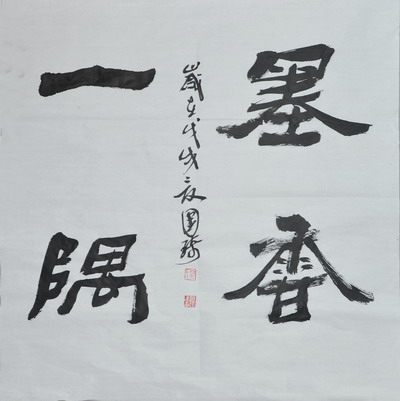 墨香
一隅
歲在戊戌夏國瑞